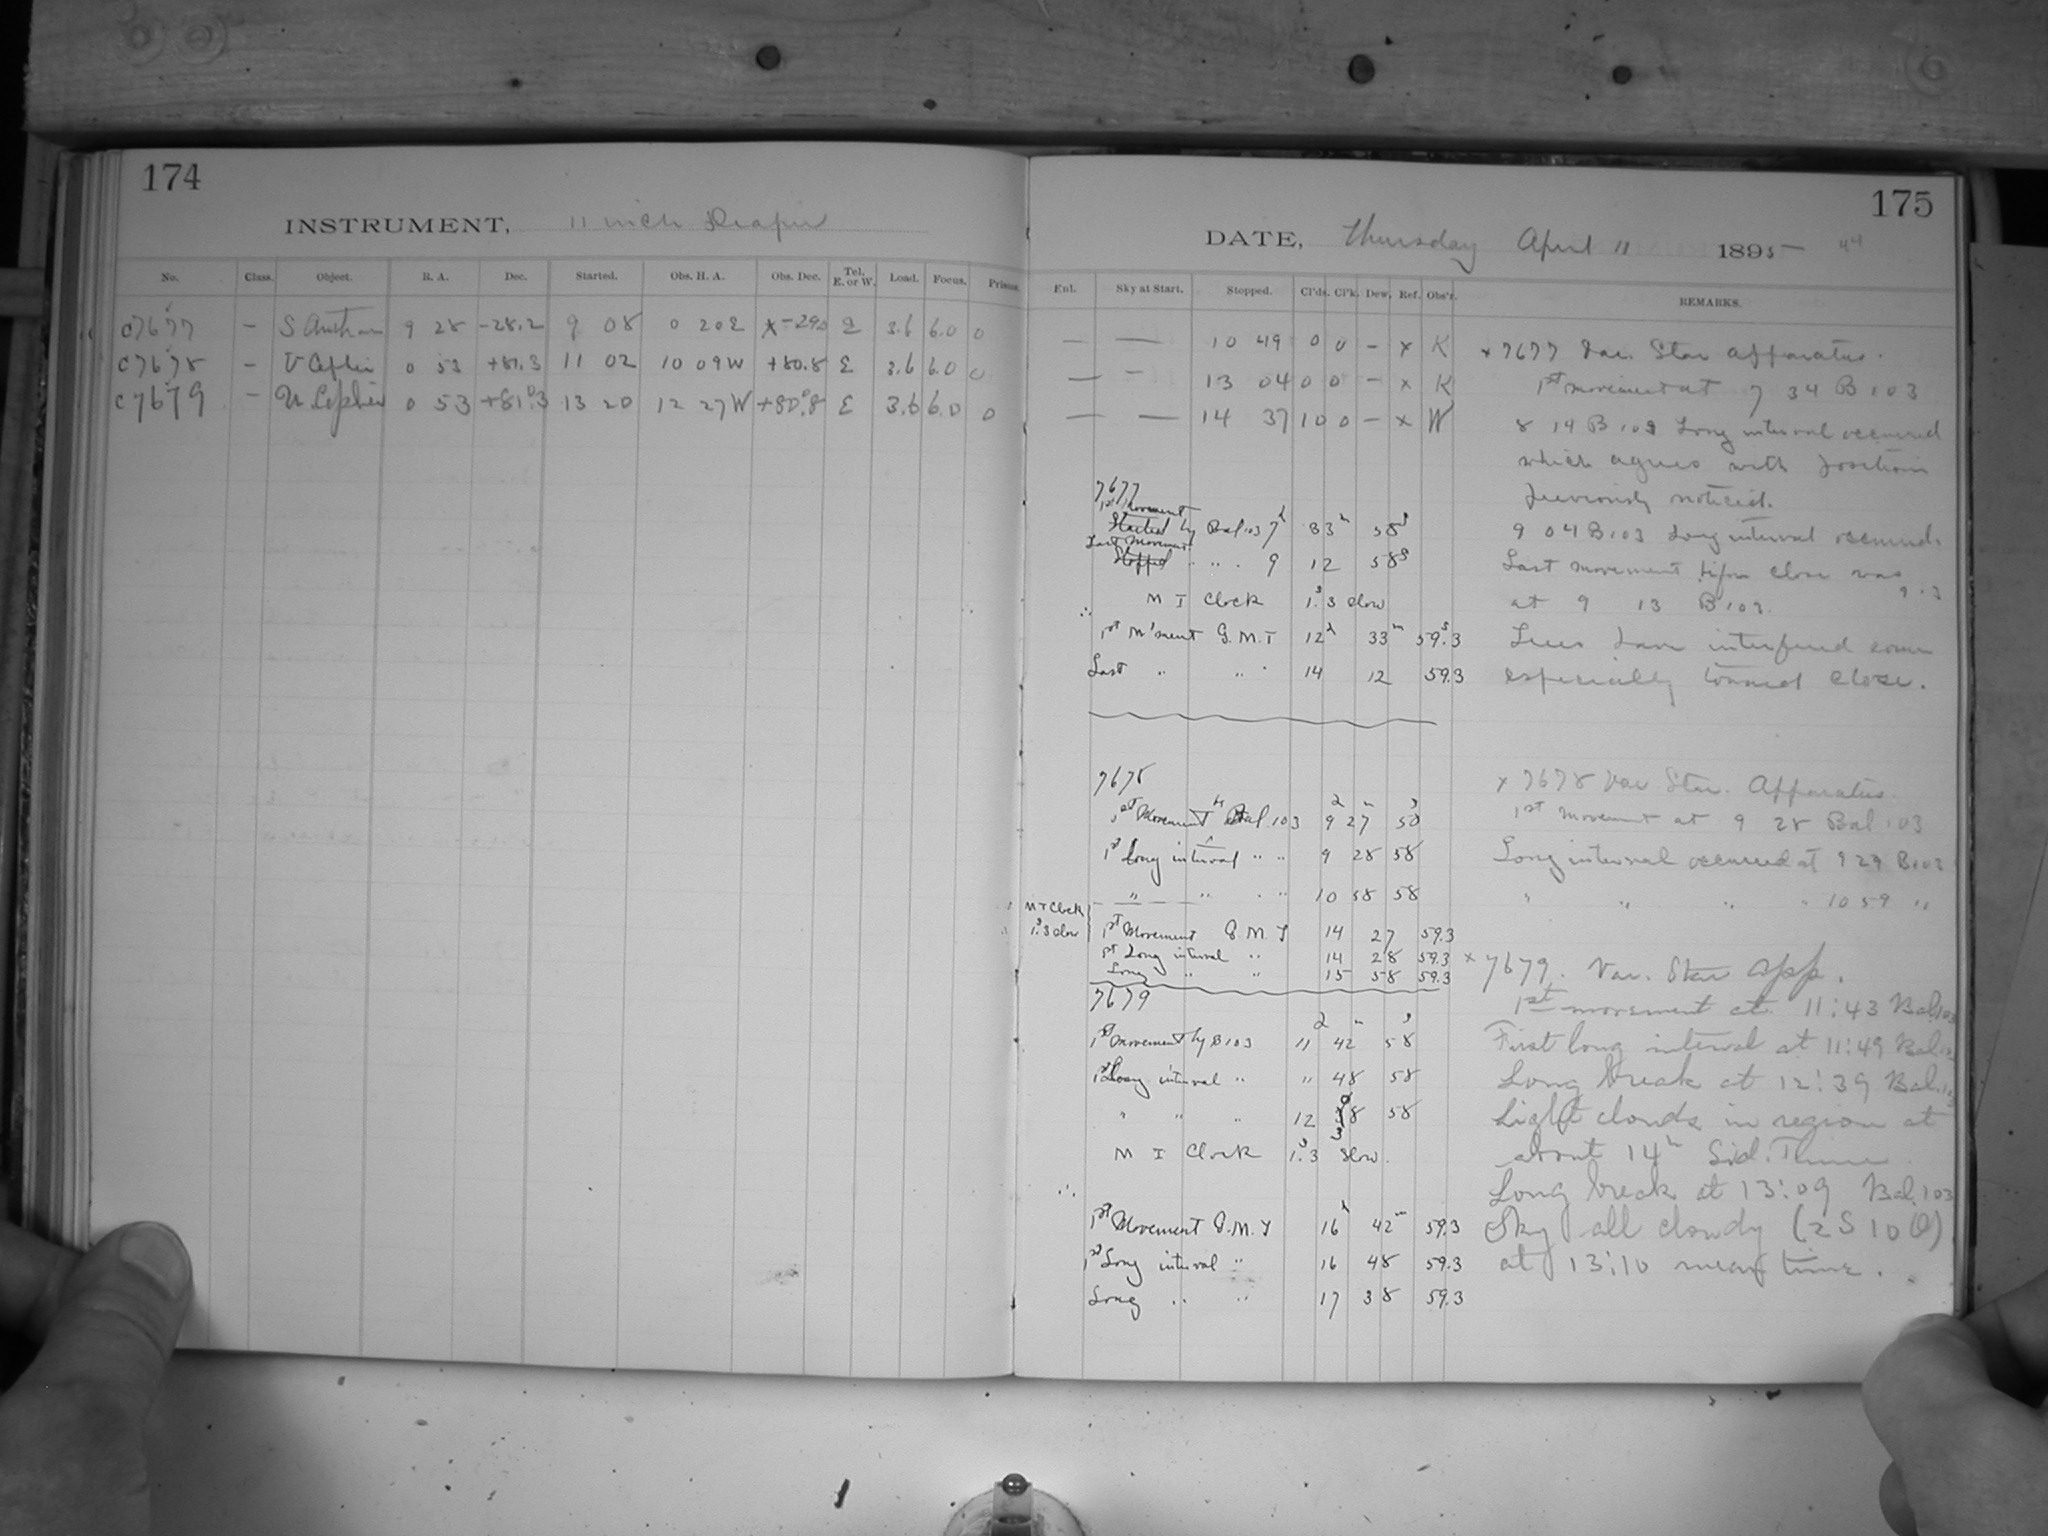 174
INSTRUMENT, 11 inch Draper
No. Class. Object. R. A. Dec. Started. Obs. H. A. Obs. Dec. Tel. E. or W. Load. Focus. Prisms.
C7677 – S Antliae 9 28 -28.2 9 08 0 20E x-29.0 E 3.6 6.0 0
C7678 – U Cephei 0 53 +81.3 11 02 10 09W +80.8 E 3.6 6.0 0
C7679 – U Cephei 0 53 +81.3 13 20 12 27W +80.8 E 3.6 6.0 0
175
DATE, Thursday April 11 1895 44
Enl. Sky at Start. Stopped. Cl'ds. Cl'k. Dew. Ref. Obs'r. REMARKS.
— — 10 49 0 0 – x K
— – 13 04 0 0 – x K
— — 14 37 10 0 – x W
7677
1st Movement
Started by Bal 103 7h 33m 58s
Last Movement
Stopped " " . 9 12 58s
M T Clock 1.s3 slow
∴
1st M'ment G.M.T 12h 33m 59s.3
Last " " 14 12 59.3
7678
1st Movement by Bal. 103 9h 27m 58s
1st Long interval " " 9 28 58
" " " " 10 58 58
M T Clock
1.s3 slow
1st Movement G.M.T 14 27 59.3
1st Long interval " 14 28 59.3
Long " " 15 58 59.3
7679
1st movement by B103 11h 42m 58s
1st Long interval " " 48 58
" " " 12 38 58
M T Clock 1.s3 slow.
∴
1st Movement G.M.T 16h 42m 59.3
1st Long interval " 16 48 59.3
Long " " 17 38 59.3
x 7677 Var. Star apparatus.
1st movement at 7 34 B103
8 14 B103 Long interval occurred
which agrees with positions
previously noticed.
9 04 B103 Long interval occurred.
Last movement before close was
at 9 13 B103. 9.3
Trees have interfered some
especially toward close.
x 7678 Var. Star. Apparatus.
1st movement at 9 28 Bal 103
Long interval occurred at 9 29 B103
" " " " 10 59 "
x 7679. Var. Star App.
1st movement at 11:43 Bal.103
First long interval at 11:49 Bal.103
Long break at 12:39 Bal.103
Light clouds in region at
about 14h Sid. Time
Long break at 13:09 Bal.103
Sky all cloudy (2 S 10 0)
at 13:10 mean time.